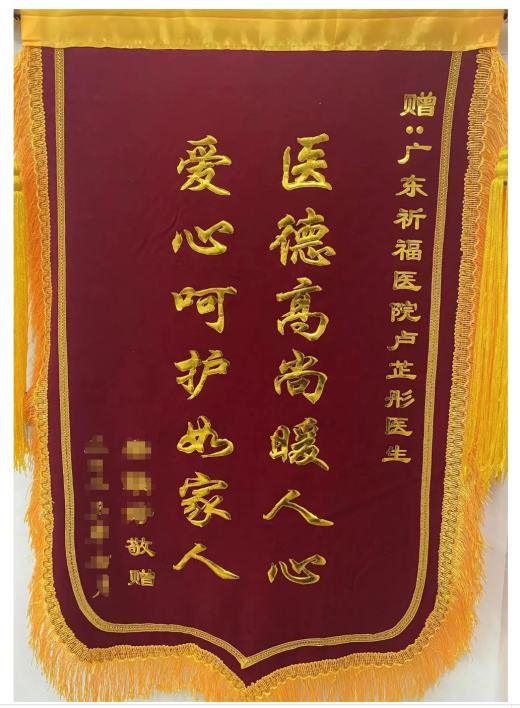 赠:广东祈福医院卢芷彤医生
医德高尚暖人心
爱心呵护如家人
敬赠